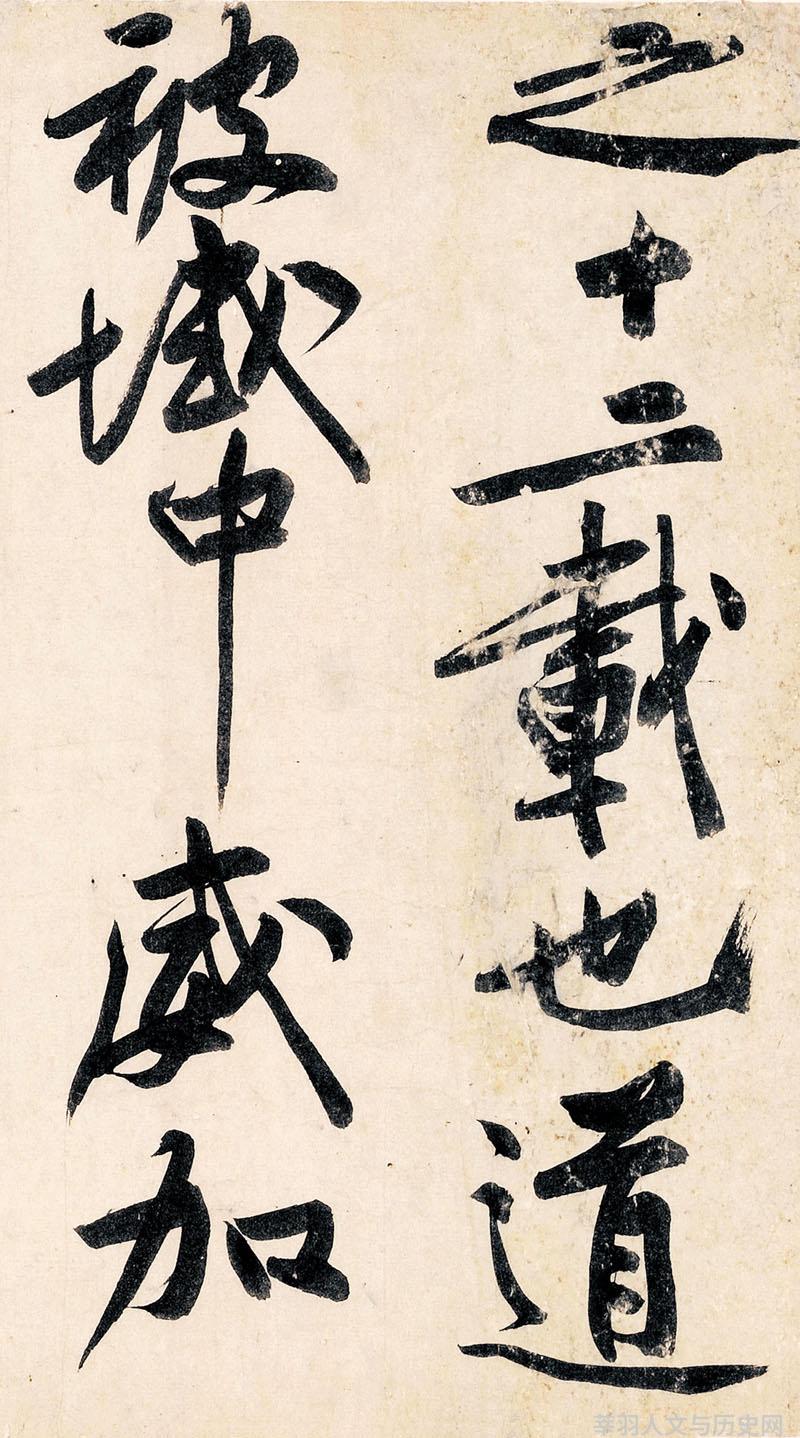 之十二載也道
被域中威加
莘羽人文与历史网